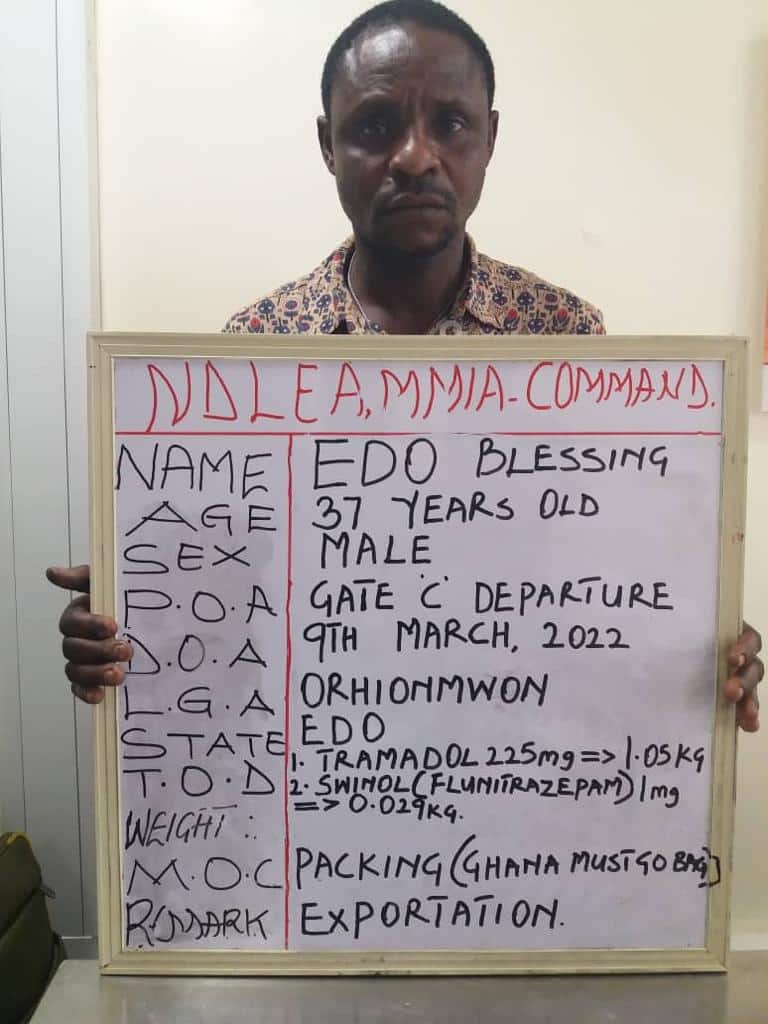 NDLEA, MMIA-COMMAND.
NAME EDO BLESSING
AGE 37 YEARS OLD
SEX MALE
P.O.A GATE 'C' DEPARTURE
D.O.A 9TH MARCH, 2022
L.G.A ORHIONMWON
STATE EDO
T.O.D 1. TRAMADOL 225mg => 1.05KG
2. SWINOL (FLUNITRAZEPAM) 1mg
WEIGHT :. => 0.029KG.
M.O.C PACKING (GHANA MUST GO BAG)
REMARK EXPORTATION.